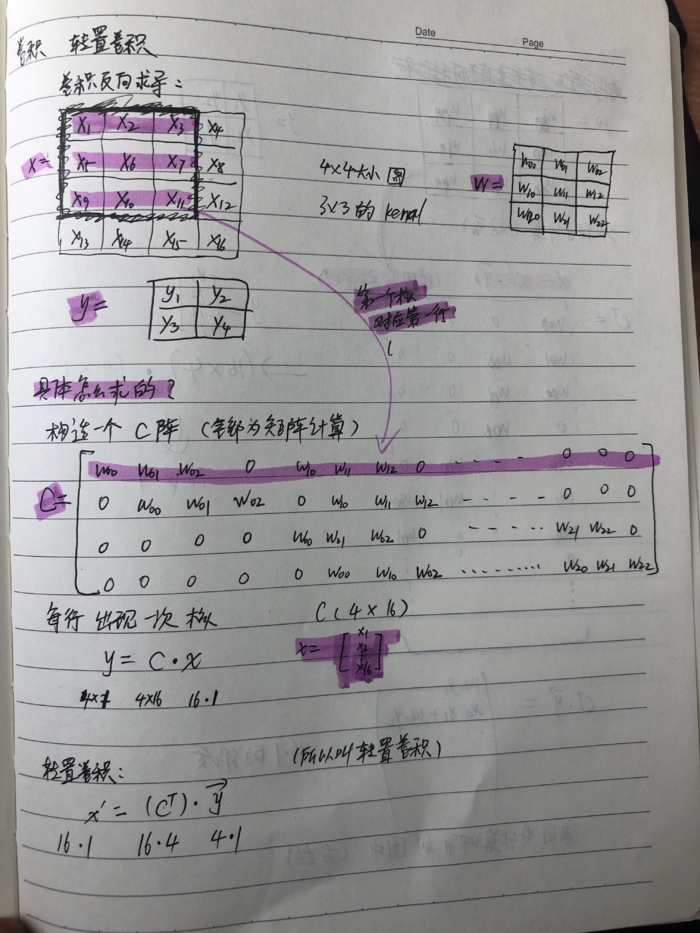 Date
Page
卷积 转置卷积
卷积反向求导:
X1 X2 X3 X4
X5 X6 X7 X8
X9 X10 X11 X12
X13 X14 X15 X16
X=
4×4大小 图
3×3的 kernal
W=
W00 W01 W02
W10 W11 W12
W20 W21 W22
y=
y1 y2
y3 y4
第一个核
对应第一行
具体怎么求的?
构造一个 C阵 (全部为矩阵计算)
C=
W00 W01 W02 0 W10 W11 W12 0 ---- 0 0 0
0 W00 W01 W02 0 W10 W11 W12 ---- 0 0 0
0 0 0 0 W00 W01 W02 0 ---- W21 W22 0
0 0 0 0 0 W00 W10 W02 ........ W20 W21 W22
每行 出现一次 核 C(4×16)
y = C·x
x= [x1 x2 x16]
4×1 4×16 16·1
转置卷积: (所以叫转置卷积)
x' = (C^T)·y
16·1 16·4 4·1